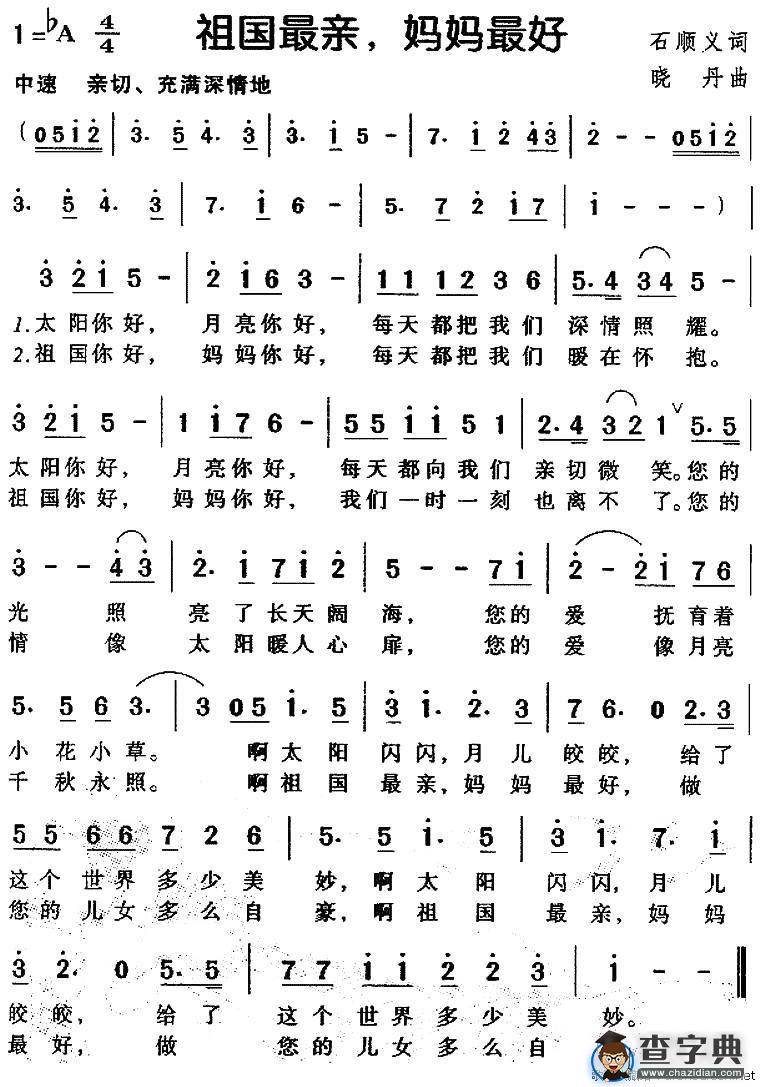 1=♭A 4/4 祖国最亲，妈妈最好 石顺义词
中速 亲切、充满深情地 晓丹曲
(0512 | 3. 5 4. 3 | 3. 1 5 - | 7. 1 2 43 | 2 - - 0512 |
3. 5 4. 3 | 7. 1 6 - | 5. 7 2 17 | 1 - - -) |
3 21 5 - | 2 16 3 - | 11 12 3 6 | 5.4 34 5 - |
1.太阳你好，月亮你好，每天都把我们深情照耀。
2.祖国你好，妈妈你好，每天都把我们暖在怀抱。
3 21 5 - | 1 17 6 - | 55 11 5 1 | 2.4 32 1 ∨ 5.5 |
太阳你好，月亮你好，每天都向我们亲切微笑。您的
祖国你好，妈妈你好，我们一时一刻也离不了。您的
3 - - 43 | 2. 1 71 2 | 5 - - 71 | 2 - 21 76 |
光照亮了长天阔海，您的爱抚育着
情像太阳暖人心扉，您的爱像月亮
5. 5 6 3. | 3 05 1. 5 | 3 1. 2. 3 | 7 6. 0 2.3 |
小花小草。啊太阳闪闪，月儿皎皎，给了
千秋永照。啊祖国最亲，妈妈最好，做
55 66 7 2 6 | 5. 5 1. 5 | 3 1. 7. 1 |
这个世界多少美妙，啊太阳闪闪，月儿
您的儿女多么自豪，啊祖国最亲，妈妈
3 2. 0 5.5 | 77 11 2 2 3 | 1 - - - ‖
皎皎，给了这个世界多少美妙。
最好，做您的儿女多么自
查字典
www.chazidian.com